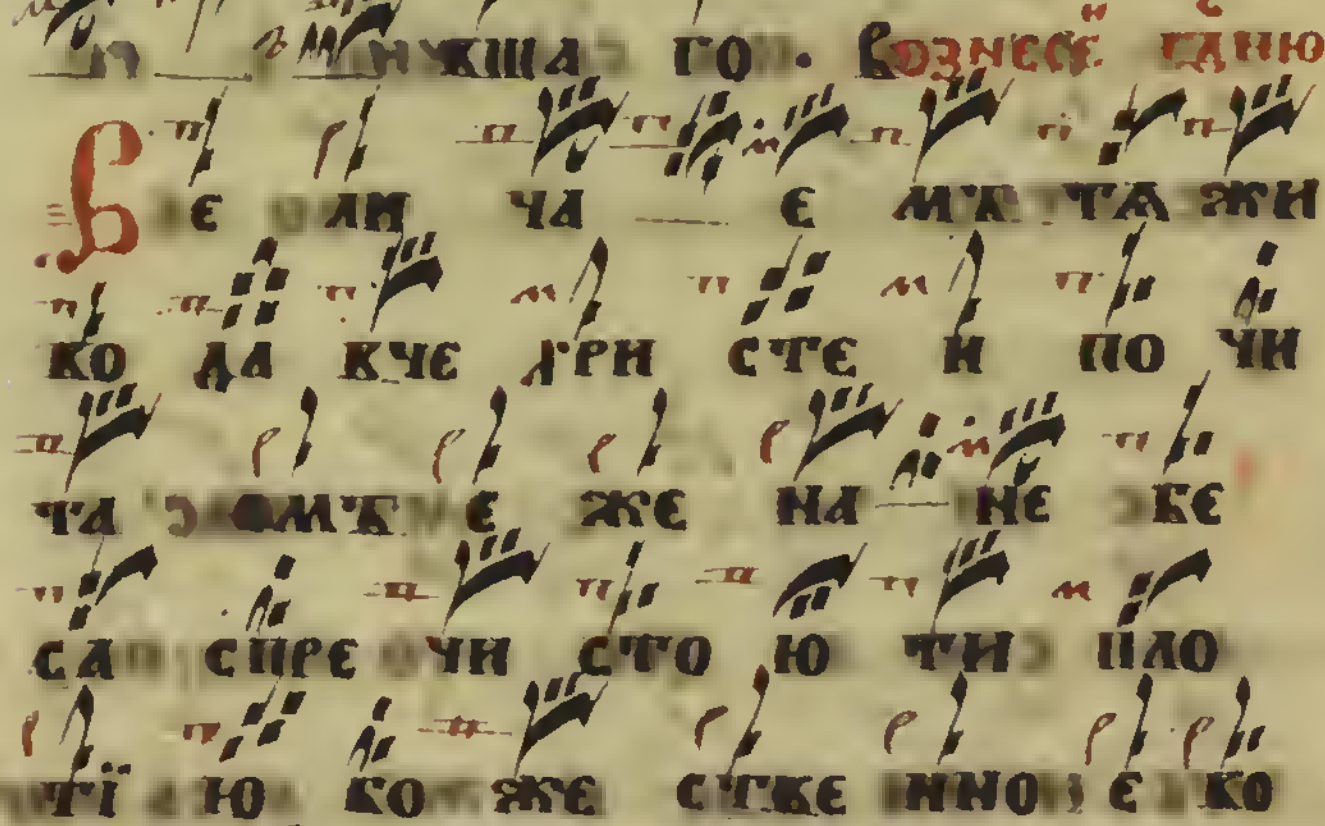 ГО · ВОЗНЕСЕ ГДНЮ
ВЕ ЛИ ЧА Е МЪ ТѦ ЖИ
ВО ДА ВЧЕ ХРИ СТЕ И ПО ЧИ
ТА ЕМЪ Е ЖЕ НА НЕ БЕ
СА СПРЕ ЧИ СТО Ю ТИ ПЛО
ТЇ Ю БО ЖЕ СТВЕ ННО Е ВО